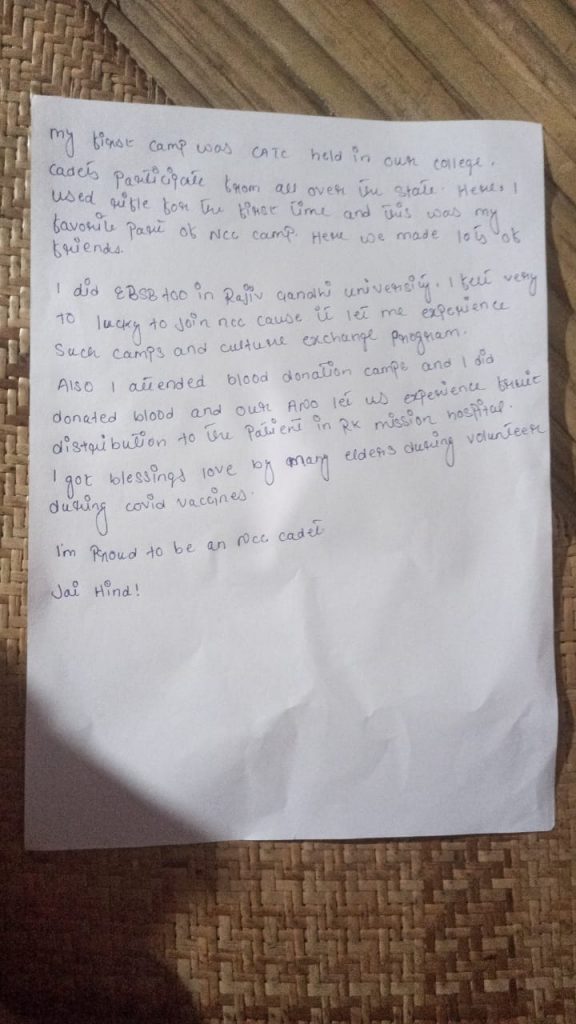 My first camp was CATC held in our college.
Cadets participate from all over the state. Here, I
used rifle for the first time and this was my
favorite part of NCC camp. Here we made lots of
friends.
I did EBSB too in Rajiv Gandhi university. I feel very
to lucky to join ncc cause it let me experience
such camps and culture exchange program.
Also I attended blood donation camps and I did
donated blood and our ANO let us experience fruit
distribution to the patient in RK mission hospital.
I got blessings love by many elders during volunteer
during covid vaccines.
I'm proud to be an NCC cadet
Jai Hind!